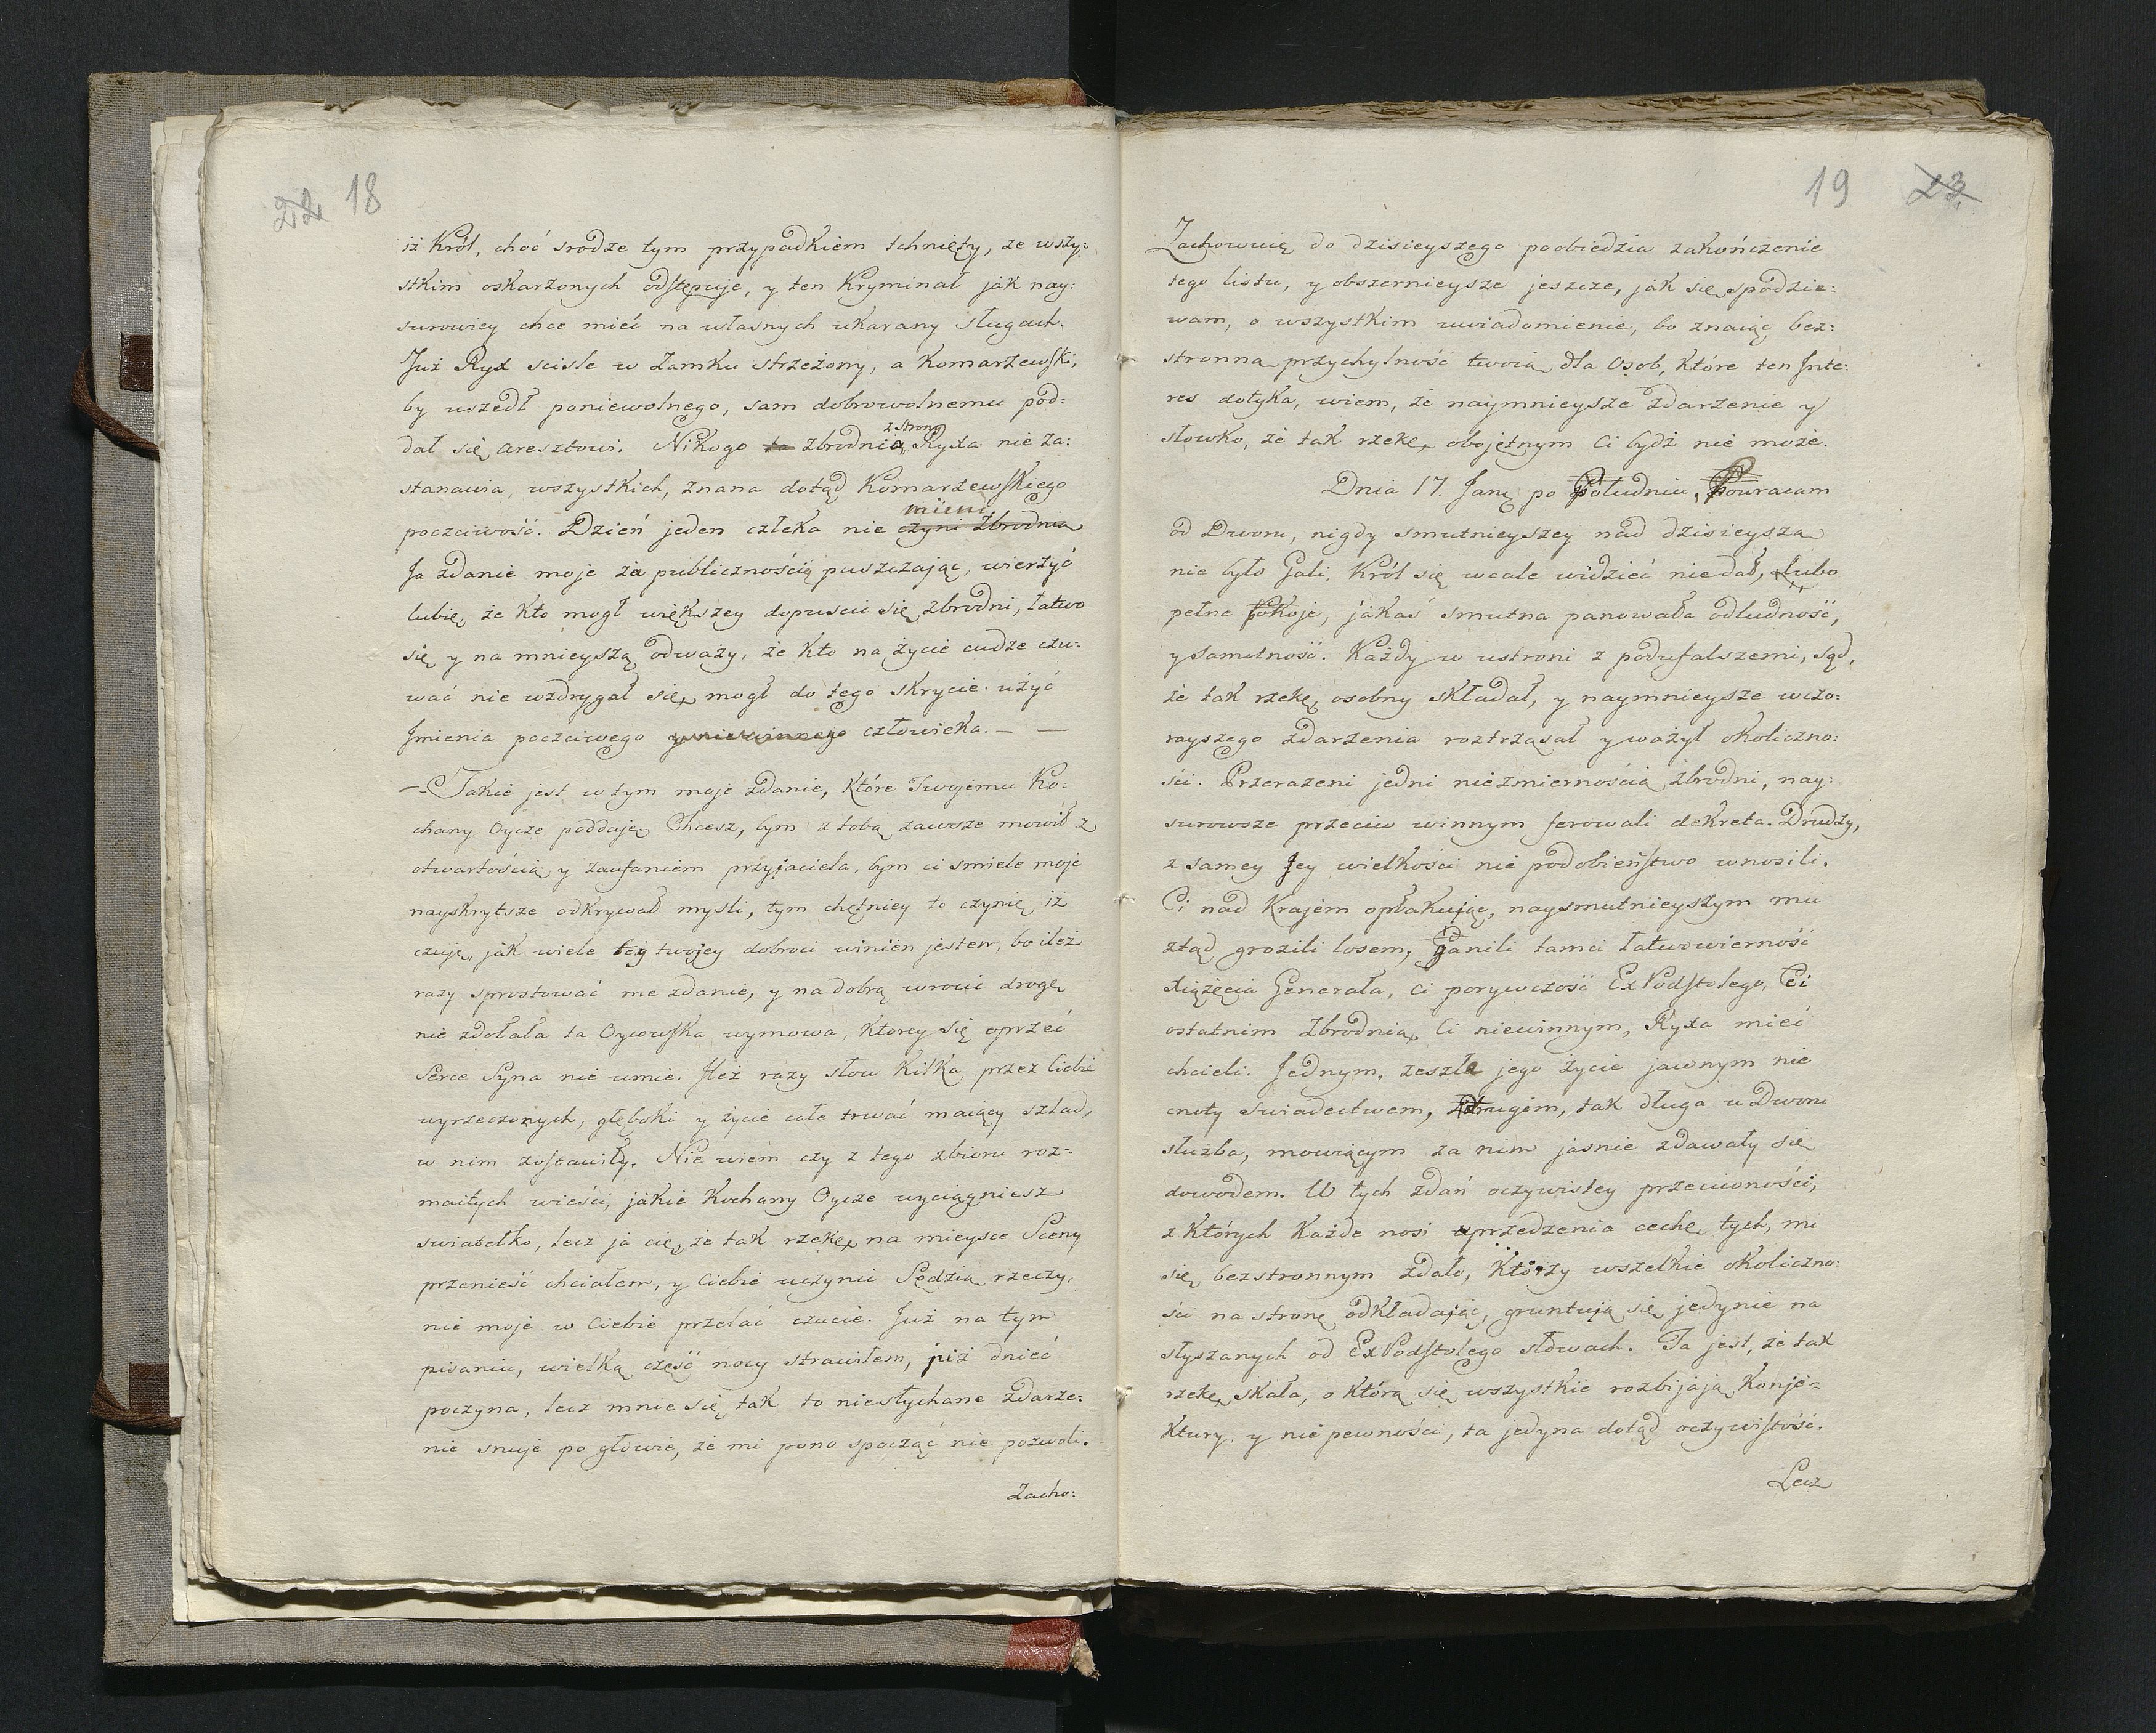 22 18
iż Król, choć srodze tym przypadkiem tchnięty, ze wszy:
stkim oskarżonych odstępuje, y ten Kryminał jak nay:
surowiey chce mieć na własnych ukarany sługach.
Już Ryx scisle w Zamku strzeżony, a Komarzewski,
by uszedł poniewolnego, sam dobrowolnemu pod:
z strony
dał się aresztowi. Nikogo ta zbrodnia, Ryxa nie za:
stanawia, wszystkich, znana dotąd Komarzewskiego
mieni
poczciwość. Dzień jeden człeka nie czyni zbrodnia
Ja zdanie moje za publicznością puszczając, wierzyć
lubię, że kto mogł większey dopuscic się zbrodni, łatwo
się y na mnieyszą odważy, że kto na życie cudze czu:
wać nie wzdrygał się, mogł do tego skrycie użyć
Jmienia poczciwego y niewinnego człowieka. — —
— Takie jest w tym moje zdanie, które Twojemu Ko:
chany Oycze poddaję. Chcesz, bym z tobą zawsze mowił z
otwartością y zaufaniem przyjaciela, bym ci smiele moje
nayskrytsze odkrywał mysli, tym chętniey to czynię, iż
czuję, jak wiele tey twojey dobroci winien jestem, bo ileż
razy sprostować me zdanie, y na dobrą wrocić drogę
nie zdołała ta Oycowska wymowa, ktorey się oprzeć
Serce Syna nie umie. Jleż razy słow kilka przez Ciebie
wyrzeczonych, głęboki y życie całe trwać maiący szlad,
w nim zostawiły. Nie wiem czy z tego zbioru roz:
maitych wieści, jakie Kochany Oycze wyciągniesz
swiatełko, lecz ja cię, że tak rzekę, na mieysce Sceny
przenieść chciałem, y Ciebie uczynić Sędzią rzeczy,
nie moje w Ciebie przelać czucie. Już na tym
pisaniu, wielką część nocy strawiłem, już dnieć
poczyna, lecz mnie się tak to niesłychane zdarze:
nie snuje po głowie, że mi pono spocząć nie pozwoli.
Zacho:
19 23
Zachowuię do dzisieyszego poobiedzia zakończenie
tego listu, y obszernieysze jeszcze, jak się spodzie:
wam, o wszystkim uwiadomienie, bo znaiąc bez:
stronna przychylność twoią dla Osob, które ten Jnte:
res dotyka, wiem, że naymnieysze zdarzenie y
słowko, że tak rzekę, obojętnym Ci bydź nie może.
Dnia 17. Janu. po Południu, Powracam
od Dworu, nigdy smutnieyszey nad dzisieyszą
nie było Gali, Król się wcale widzieć niedał, lubo
pełne pokoje, jakaś smutna panowała odludność,
y Samotność. Każdy w ustroni z poduFalszemi, sąd,
że tak rzekę, osobny składał, y naymnieysze wczo:
rayszego zdarzenia roztrząsał y ważył okoliczno:
ści. Przerażeni jedni niezmiernością zbrodni, nay:
surowsze przeciw winnym ferowali dekreta. Drudzy,
z samey Jey wielkości nie podobieństwo wnosili.
Ci nad Krajem opłakując, naysmutnieyszym mu
ztąd grozili losem, Ganili tamci łatwowierność
Xiążęcia Generała, Ci porywczość ExPodstolego, Ci
ostatnim zbrodnią, Ci niewinnym, Ryxa mieć
chcieli. Jednym, zeszłe jego życie jawnym nie
cnoty swiadectwem, drugim, tak długa u Dworu
służba, mowiącym za nim jasnie zdawały się
dowodem. W tych zdań oczywistey przeciwności,
z których każde nosi uprzedzenia cechę, tych, mi
się bezstronnym zdało, którzy wszelkie okoliczno:
ści na stronę odkładając, gruntują się jedynie na
słyszanych od ExPodstolego słowach. Ta jest, że tak
rzekę, skała, o którą się wszystkie rozbijają Konje=
ktury, y nie pewności, ta jedyna dotąd oczywistość.
Lecz